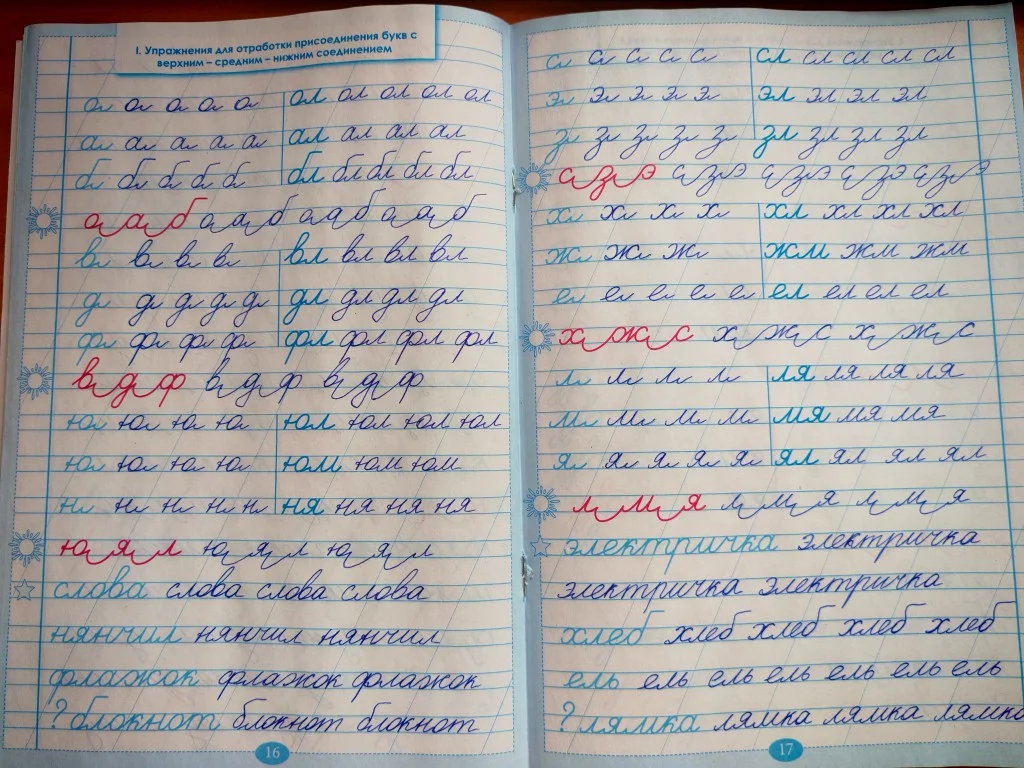 I. Упражнения для отработки присоединения букв с
верхним – средним – нижним соединением
ол ол ол ол ол ол ол ол ол ол
ал ал ал ал ал ал ал ал ал
бл бл бл бл бл бл бл бл бл бл
о а б о а б о а б о а б
вл вл вл вл вл вл вл вл
дл дл дл дл дл дл дл дл дл
фл фл фл фл фл фл фл фл
в д ф в д ф в д ф
юл юл юл юл юл юл юл юл
юл юл юл юл юм юм юм
нл нл нл нл нл ня ня ня ня
ю я л ю я л ю я л
слова слова слова слова
нянчил нянчил нянчил
флажок флажок флажок
? блокнот блокнот блокнот
16
сл сл сл сл сл сл сл сл сл сл
эл эл эл эл эл эл эл эл эл
зл зл зл зл зл зл зл зл зл
с з э с з э с з э с з э с з э
хл хл хл хл хл хл хл хл
жл жл жл жм жм жм
ел ел ел ел ел ел ел ел ел
х ж с х ж с х ж с
лл лл лл лл ля ля ля ля
мл мл мл мл мя мя мя
ял ял ял ял ял ял ял ял ял
л м я л м я л м я
электричка электричка
электричка электричка
хлеб хлеб хлеб хлеб хлеб
ель ель ель ель ель ель
? лямка лямка лямка лямка
17